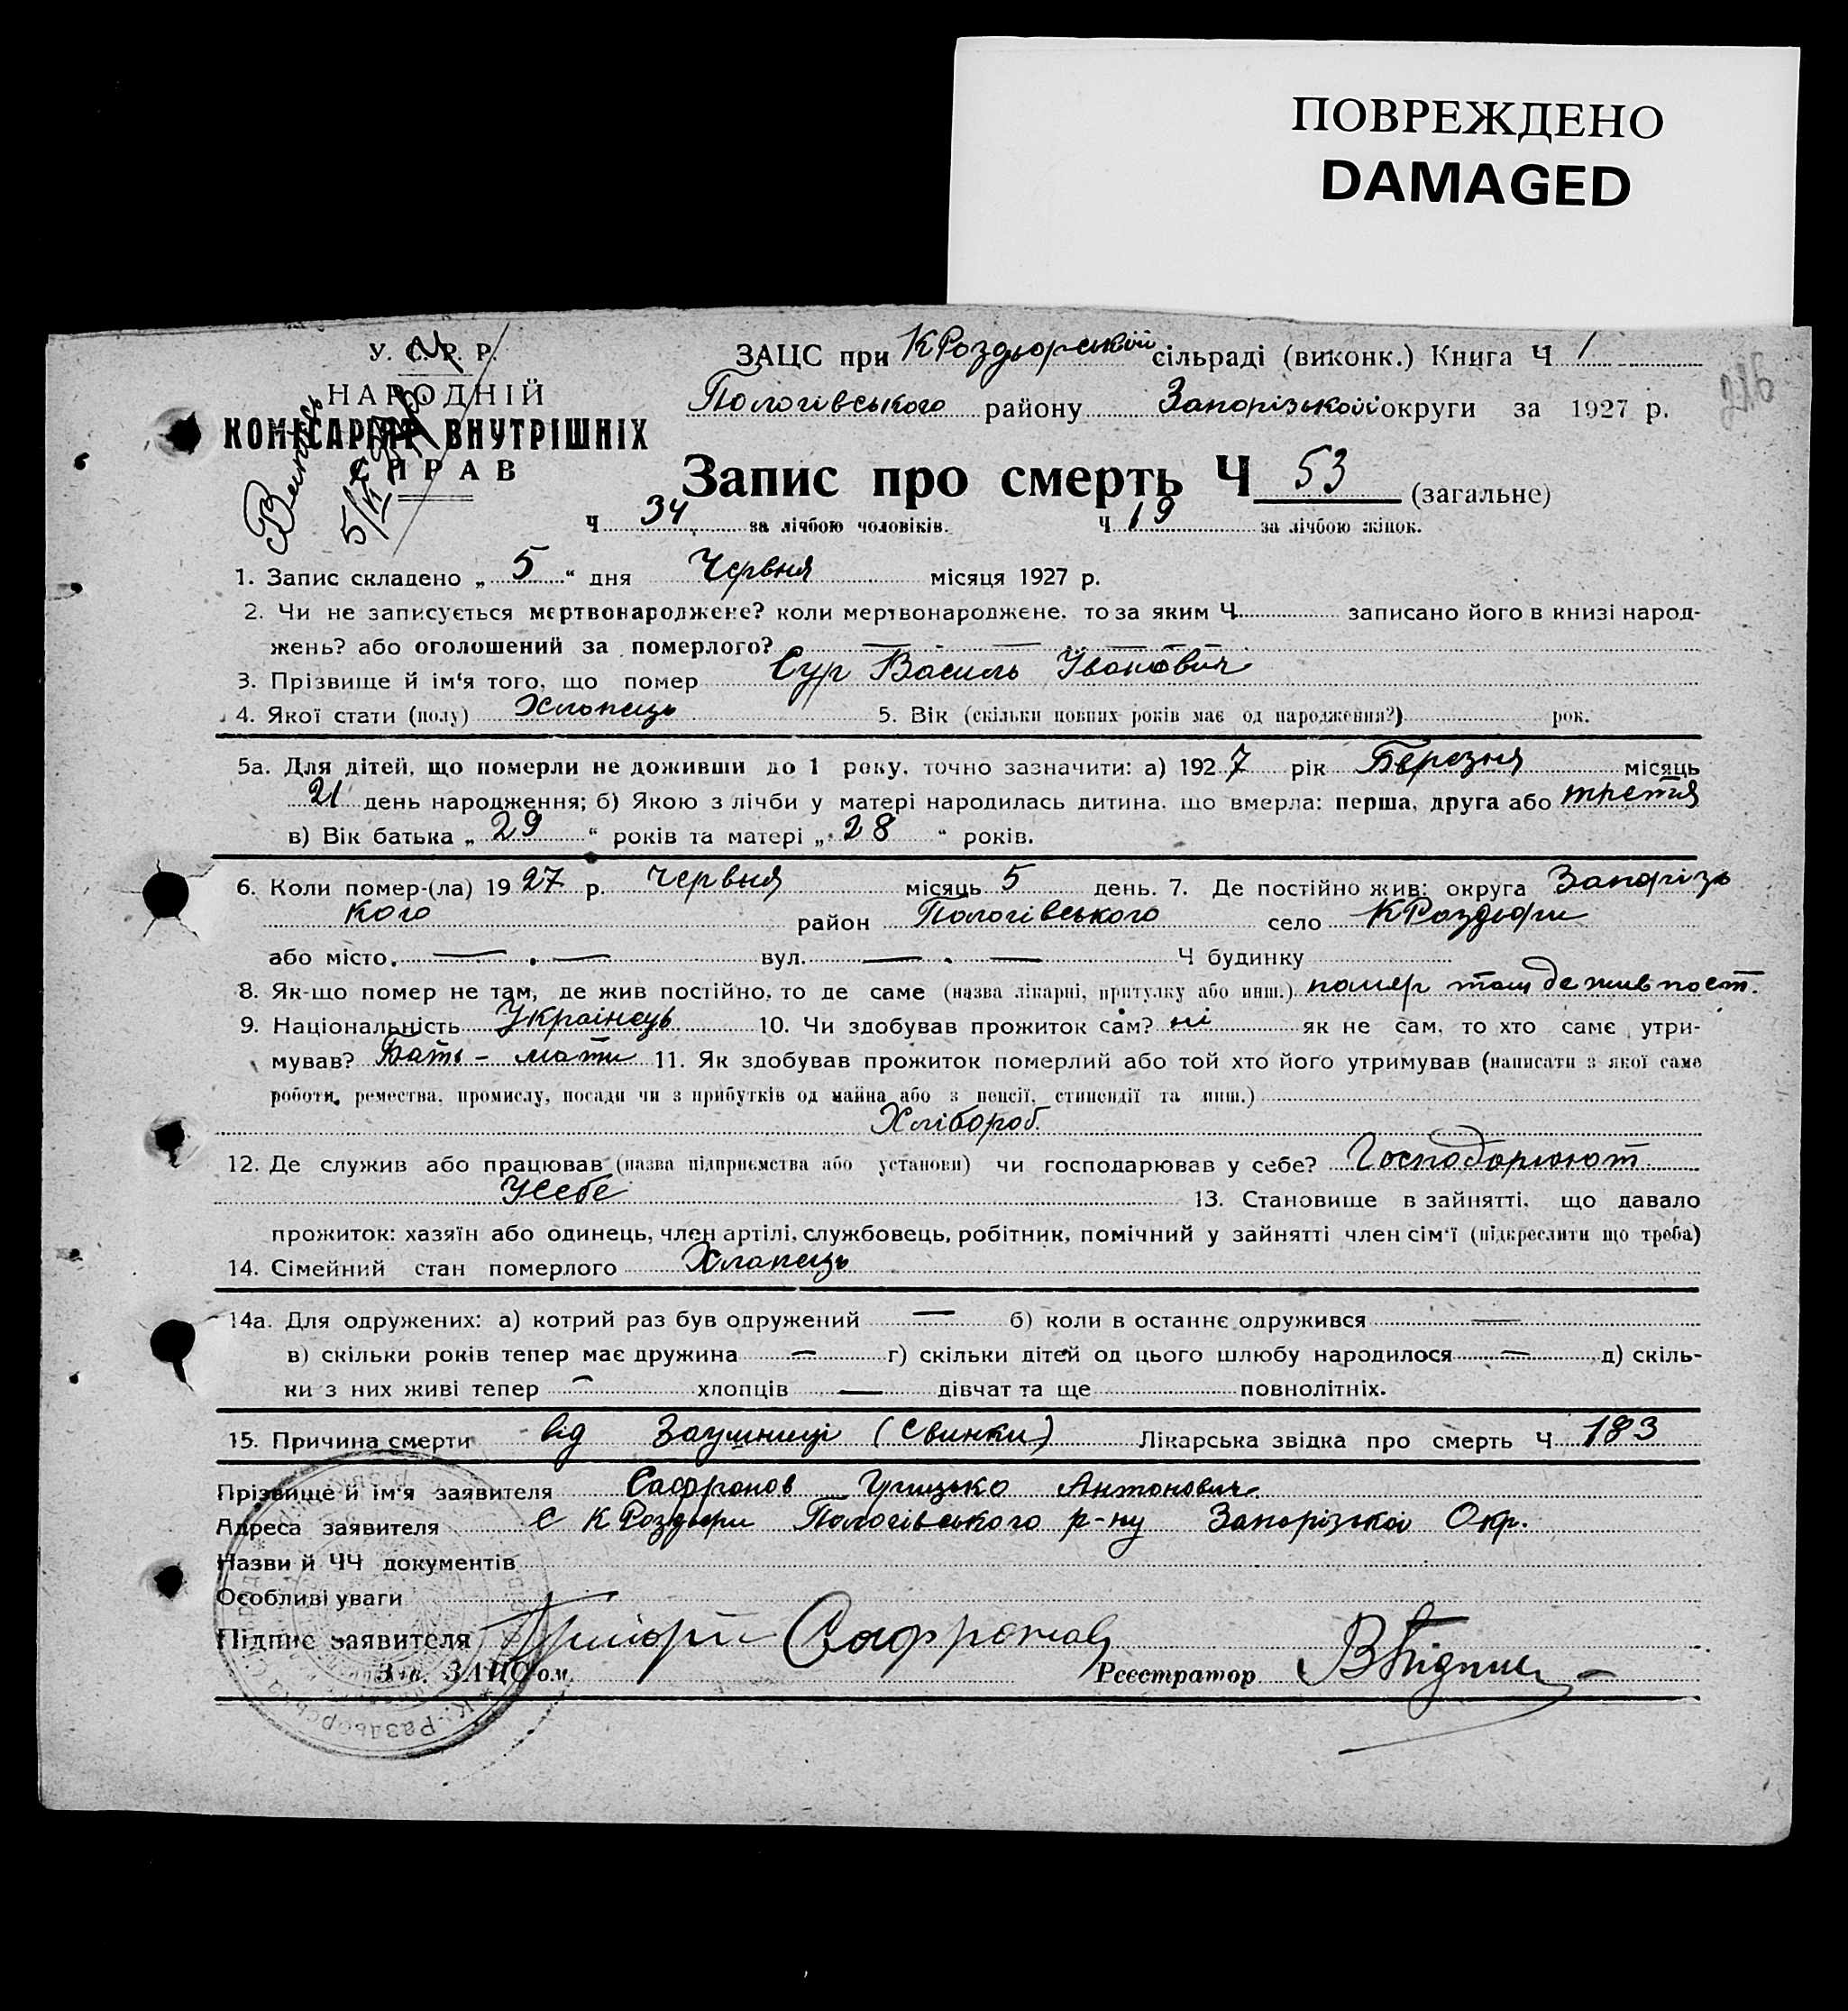 ПОВРЕЖДЕНО
DAMAGED
У. С. Р. Р.
НАРОДНІЙ
КОМІСАРІЯТ ВНУТРІШНІХ
СПРАВ
ЗАЦС при КРоздьорській сільраді (виконк.) Книга Ч 1
Пологівського району Запорізької округи за 1927 р.
Запис про смерть Ч 53 (загальне)
Ч 34 за лічбою чоловіків. Ч 19 за лічбою жінок.
1. Запис складено „ 5 “ дня Червня місяця 1927 р.
2. Чи не записується мертвонароджене? коли мертвонароджене, то за яким Ч. записано його в книзі народ-
жень? або оголошений за померлого? — — — —
3. Прізвище й ім'я того, що помер Сур Василь Іванович
4. Якої стати (полу) Хлопець 5. Вік (скільки повних років має од народження?) рок.
5а. Для дітей, що померли не доживши до 1 року, точно зазначити: а) 1927 рік Березня місяць
21 день народження; б) Якою з лічби у матері народилась дитина, що вмерла: перша, друга або третя
в) Вік батька „ 29 “ років та матері „ 28 “ років.
6. Коли помер-(ла) 1927 р. Червня місяць 5 день. 7. Де постійно жив: округа Запорізь
кого район Пологівського село КРоздьори
або місто — — вул. — — Ч будинку
8. Як-що помер не там, де жив постійно, то де саме (назва лікарні, притулку або инш.) помер там де жив пост.
9. Національність Українець 10. Чи здобував прожиток сам? ні як не сам, то хто саме утри-
мував? Бать - мати 11. Як здобував прожиток померлий або той хто його утримував (написати з якої саме
роботи, ремества, промислу, посади чи з прибутків од майна або з пенсії, стипендії та инш.)
Хлібороб.
12. Де служив або працював (назва підприємства або установи) чи господарював у себе? Господорюют
Усебе 13. Становище в зайнятті, що давало
прожиток: хазяїн або одинець, член артілі, службовець, робітник, помічний у зайнятті член сім'ї (підкреслити що треба)
14. Сімейний стан померлого Хлопець
14а. Для одружених: а) котрий раз був одружений — б) коли в останнє одружився —
в) скільки років тепер має дружина — г) скільки дітей од цього шлюбу народилося — д) скіль-
ки з них живі тепер — хлопців — дівчат та ще повнолітніх.
15. Причина смерти від Заушниці (Свинки) Лікарська звідка про смерть Ч 183
Прізвище й ім'я заявителя Сафронов Грицько Антонович
Адреса заявителя С КРоздьори Пологівського р-ну Запорізької Окр.
Назви й ЧЧ документів
Особливі уваги
Підпис заявителя Сафронов
Зав. ЗАЦС'ом. Реєстратор